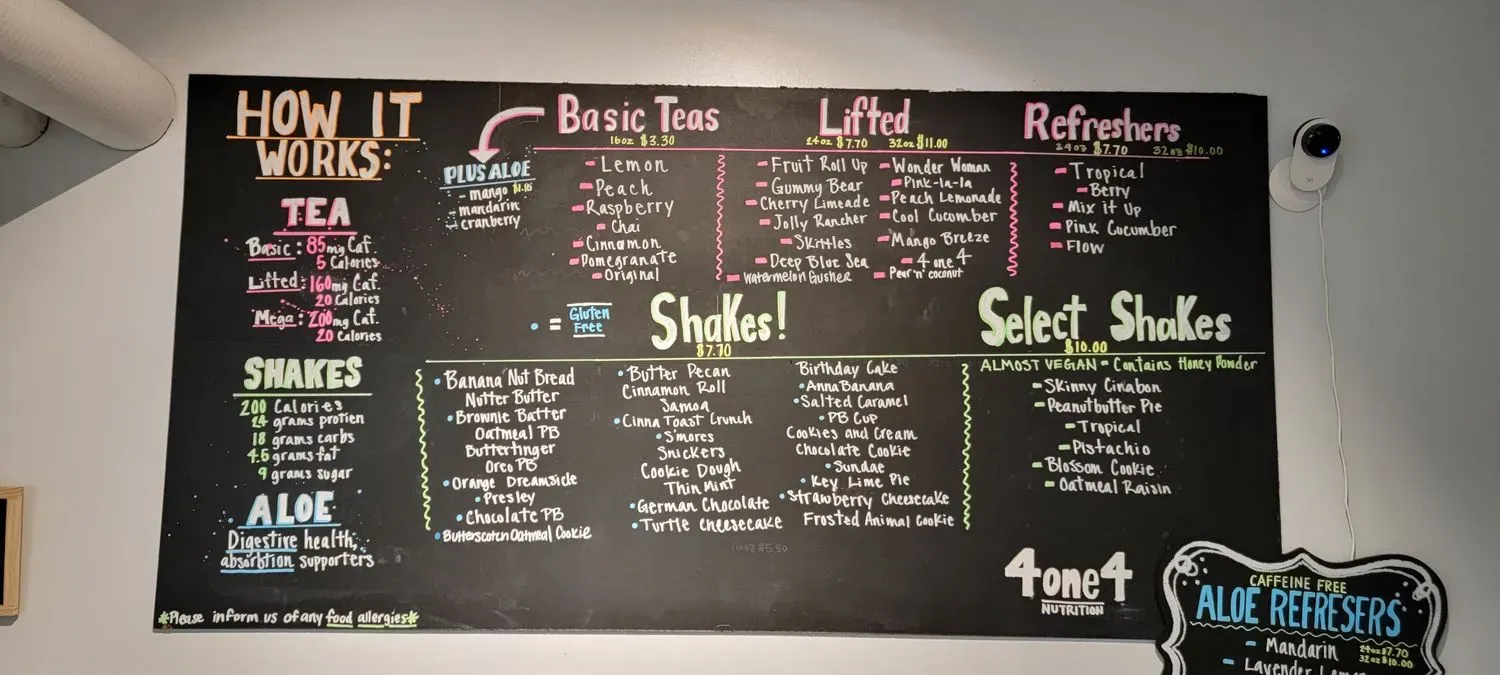 HOW IT
WORKS:
TEA
Basic: 85mg Caf.
5 Calories
Lifted: 160mg Caf.
20 Calories
Mega: 200mg Caf.
20 Calories
SHAKES
200 Calories
24 grams protien
18 grams carbs
4.5 grams fat
9 grams sugar
ALOE
Digestive health,
absorbtion supporters
*Please inform us of any food allergies*
PLUS ALOE
- mango $1.10
- mandarin
- cranberry
Basic Teas
16oz $3.30
- Lemon
- Peach
- Raspberry
- Chai
- Cinnamon
- Pomegranate
- Original
Lifted
24oz $7.70 32oz $11.00
- Fruit Roll Up
- Gummy Bear
- Cherry Limeade
- Jolly Rancher
- Skittles
- Deep Blue Sea
- Watermelon Gusher
- Wonder Woman
- Pink-la-la
- Peach Lemonade
- Cool Cucumber
- Mango Breeze
- 4 one 4
- Pear 'n' coconut
Refreshers
24oz $7.70 32oz $10.00
- Tropical
- Berry
- Mix it Up
- Pink Cucumber
- Flow
• = Gluten
Free
Shakes!
$7.70
• Banana Nut Bread
Nutter Butter
• Brownie Batter
Oatmeal PB
Butterfinger
Oreo PB
• Orange Dreamsicle
• Presley
• Chocolate PB
• Butterscotch Oatmeal Cookie
• Butter Pecan
Cinnamon Roll
Samoa
• Cinna Toast Crunch
• S'mores
Snickers
Cookie Dough
Thin Mint
• German Chocolate
• Turtle Cheesecake
16oz $5.50
Birthday Cake
• AnnaBanana
• Salted Caramel
• PB Cup
Cookies and Cream
Chocolate Cookie
• Sundae
• Key Lime Pie
• Strawberry Cheesecake
Frosted Animal Cookie
Select Shakes
$10.00
ALMOST VEGAN - Contains Honey Powder
- Skinny Cinabon
- Peanutbutter Pie
- Tropical
- Pistachio
- Blossom Cookie
- Oatmeal Raisin
4one4
NUTRITION
CAFFEINE FREE
ALOE REFRESERS
- Mandarin
24oz $7.70
32oz $10.00
- Lavender